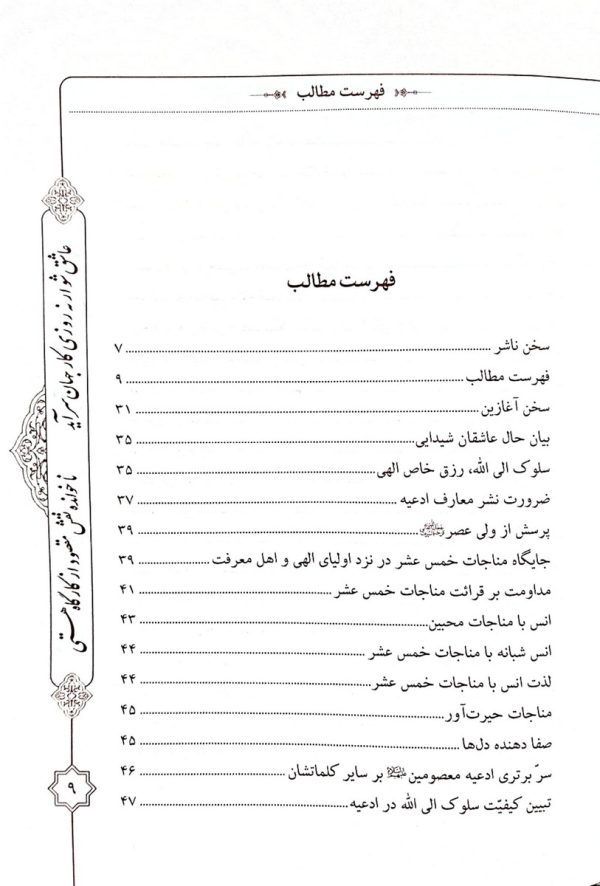 فهرست مطالب
فهرست مطالب
سخن ناشر ........ ۷
فهرست مطالب ........ ۹
سخن آغازین ........ ۳۱
بیان حال عاشقان شیدایی ........ ۳۵
سلوک الی الله، رزق خاص الهی ........ ۳۵
ضرورت نشر معارف ادعیه ........ ۳۷
پرسش از ولی عصر ........ ۳۹
جایگاه مناجات خمس عشر در نزد اولیای الهی و اهل معرفت ........ ۳۹
مداومت بر قرائت مناجات خمس عشر ........ ۴۱
انس با مناجات محبین ........ ۴۳
انس شبانه با مناجات خمس عشر ........ ۴۴
لذت انس با مناجات خمس عشر ........ ۴۴
مناجات حیرت‌آور ........ ۴۵
صفا دهنده دل‌ها ........ ۴۵
سرّ برتری ادعیه معصومین بر سایر کلماتشان ........ ۴۶
تبیین کیفیّت سلوک الی الله در ادعیه ........ ۴۷
عاشق شو ار نه روزی کار جهان سرآید
ناخوانده نقش مقصود از کارگاه هستی
۹